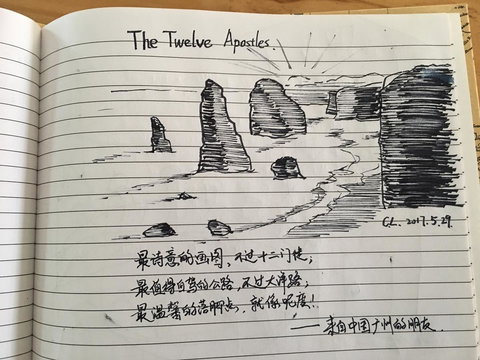 The Twelve Apostles.
CL. 2017.5.29.
最诗意的画图，不过十二门徒；
最值得自驾的公路，不过大洋路；
最温馨的落脚点，就係呢度！
——来自中国广州的朋友.